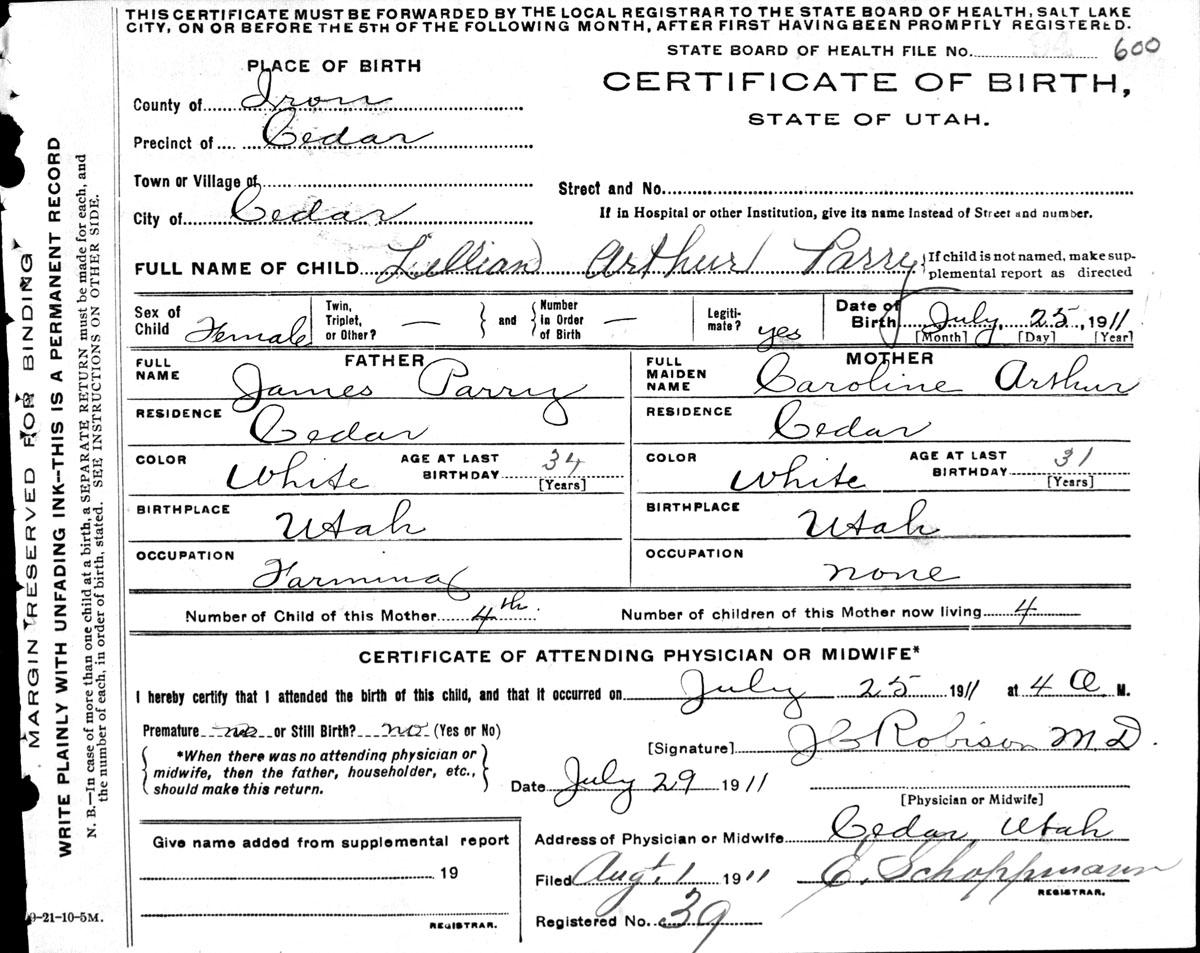 THIS CERTIFICATE MUST BE FORWARDED BY THE LOCAL REGISTRAR TO THE STATE BOARD OF HEALTH, SALT LAKE
CITY, ON OR BEFORE THE 5TH OF THE FOLLOWING MONTH, AFTER FIRST HAVING BEEN PROMPTLY REGISTERED.
STATE BOARD OF HEALTH FILE No. 600
PLACE OF BIRTH
CERTIFICATE OF BIRTH,
STATE OF UTAH.
County of Iron
Precinct of Cedar
Town or Village of
Street and No.
City of Cedar
If in Hospital or other Institution, give its name instead of Street and number.
FULL NAME OF CHILD Lillian Arthur Parry
If child is not named, make sup-
plemental report as directed
Sex of Child Female
Twin, Triplet, or Other? —
and
Number in Order of Birth —
Legiti-mate? yes
Date of Birth July, 25, 1911
[Month] [Day] [Year]
FATHER
FULL NAME James Parry
RESIDENCE Cedar
COLOR White
AGE AT LAST BIRTHDAY 34
[Years]
BIRTHPLACE Utah
OCCUPATION Farming
MOTHER
FULL MAIDEN NAME Caroline Arthur
RESIDENCE Cedar
COLOR White
AGE AT LAST BIRTHDAY 31
[Years]
BIRTHPLACE Utah
OCCUPATION none
Number of Child of this Mother 4th. Number of children of this Mother now living 4
CERTIFICATE OF ATTENDING PHYSICIAN OR MIDWIFE*
I hereby certify that I attended the birth of this child, and that it occurred on July 25 1911 at 4 a M.
Premature no or Still Birth? no (Yes or No)
*When there was no attending physician or
midwife, then the father, householder, etc.,
should make this return.
[Signature] J G Robison M.D.
Date July 29 1911
[Physician or Midwife]
Address of Physician or Midwife Cedar Utah
Filed Aug't, 1 1911 E. Schoppmann
REGISTRAR.
Registered No. 39
Give name added from supplemental report
19
REGISTRAR.
9-21-10-5M.
MARGIN RESERVED FOR BINDING
WRITE PLAINLY WITH UNFADING INK—THIS IS A PERMANENT RECORD
N. B.—In case of more than one child at a birth, a SEPARATE RETURN must be made for each, and
the number of each, in order of birth, stated. SEE INSTRUCTIONS ON OTHER SIDE.